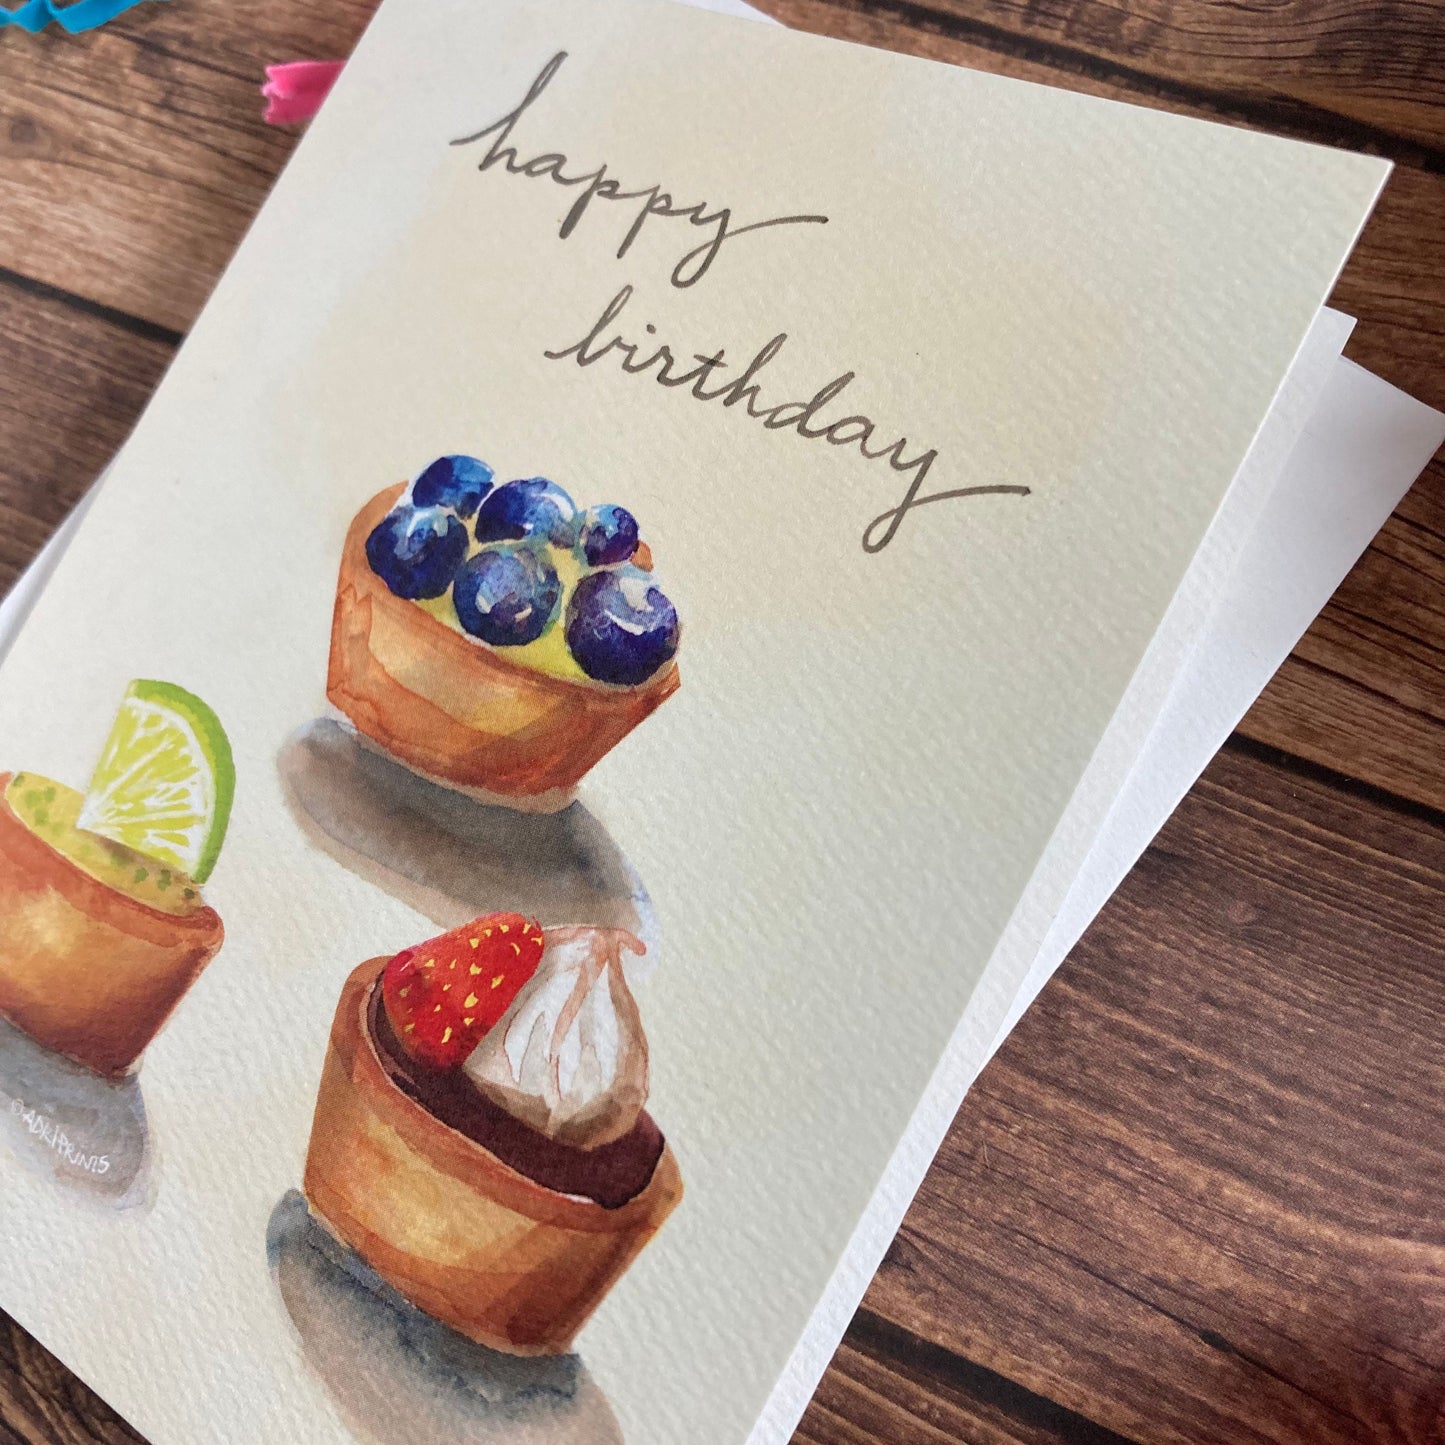 happy
birthday
©ADRIPRINTS